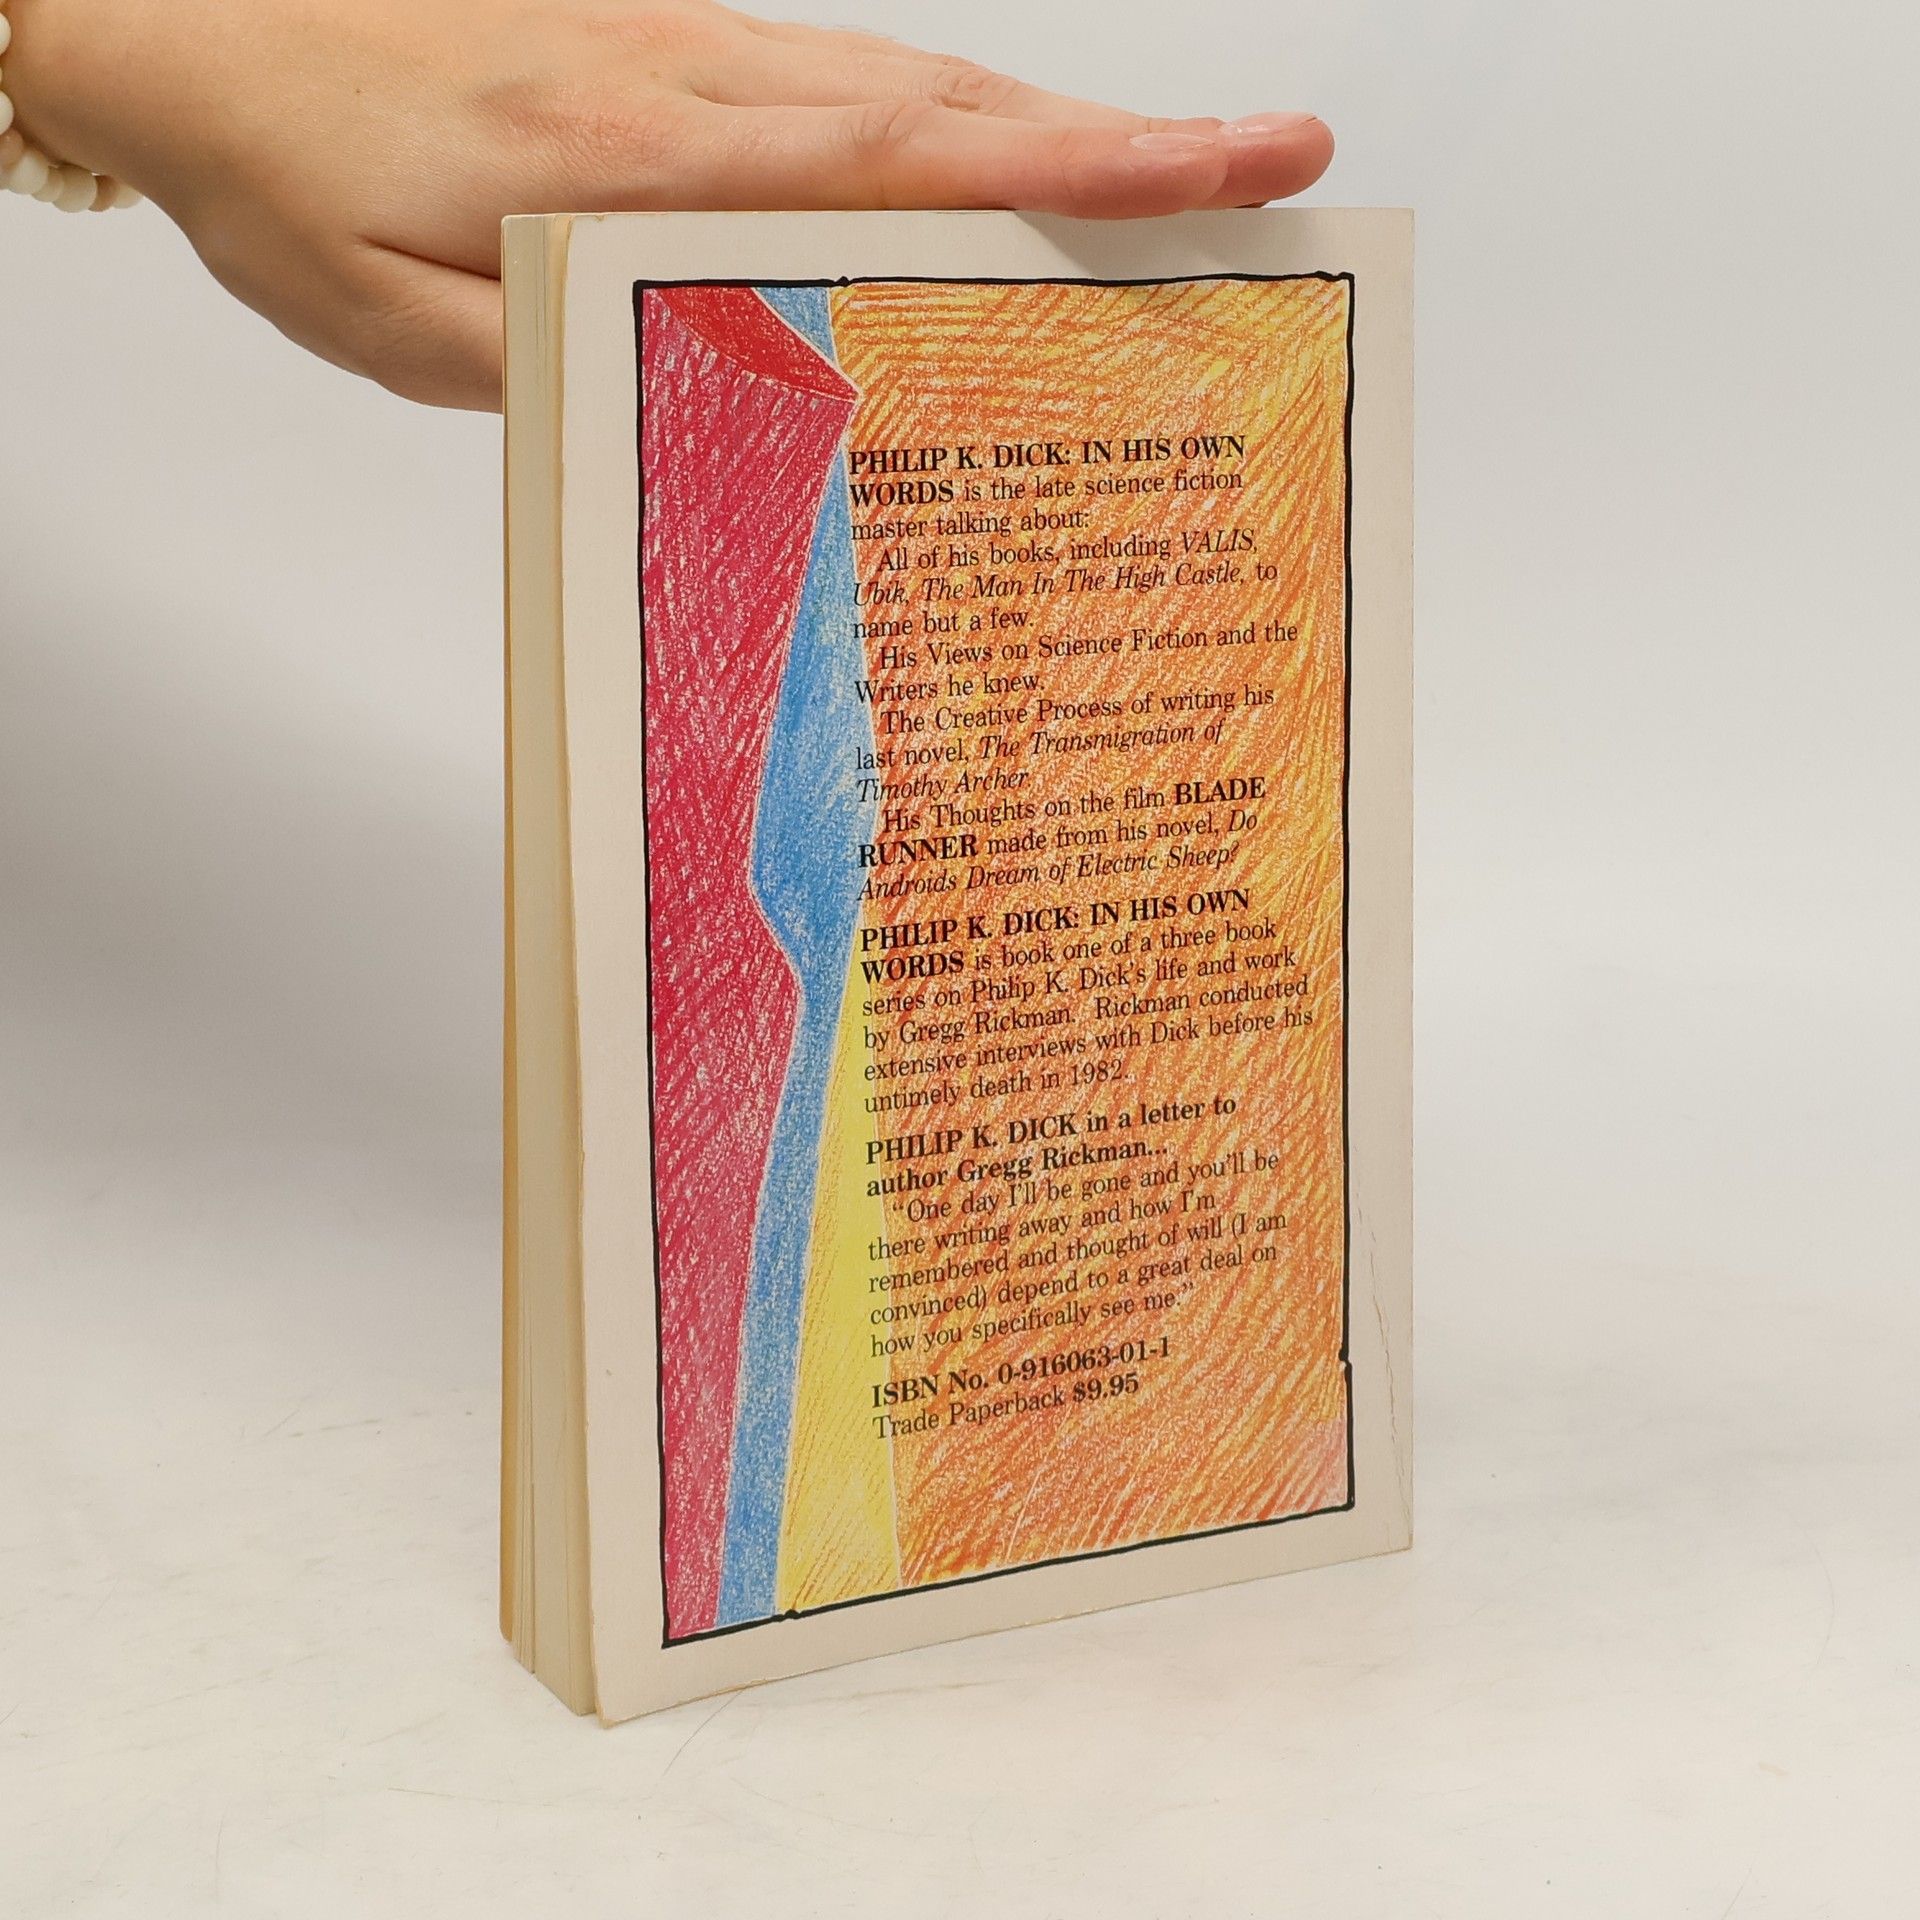 PHILIP K. DICK: IN HIS OWN
WORDS is the late science fiction
master talking about:
All of his books, including VALIS,
Ubik, The Man In The High Castle, to
name but a few.
His Views on Science Fiction and the
Writers he knew.
The Creative Process of writing his
last novel, The Transmigration of
Timothy Archer.
His Thoughts on the film BLADE
RUNNER made from his novel, Do
Androids Dream of Electric Sheep?
PHILIP K. DICK: IN HIS OWN
WORDS is book one of a three book
series on Philip K. Dick's life and work
by Gregg Rickman. Rickman conducted
extensive interviews with Dick before his
untimely death in 1982.
PHILIP K. DICK in a letter to
author Gregg Rickman...
"One day I'll be gone and you'll be
there writing away and how I'm
remembered and thought of will (I am
convinced) depend to a great deal on
how you specifically see me."
ISBN No. 0-916063-01-1
Trade Paperback $9.95